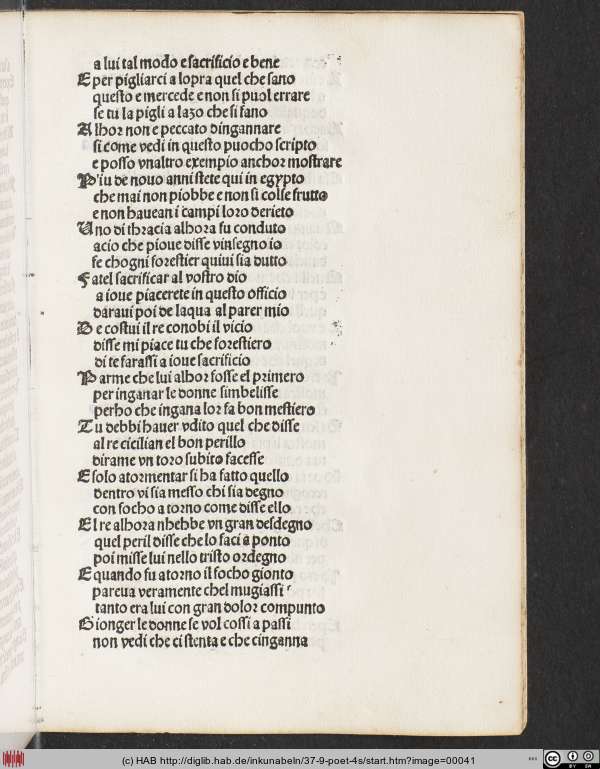 a lui tal modo e sacrificio e bene
E per pigliarci a lopra quel che sano
questo e mercede e non si puol errare
se tu la pigli a lazo che si fano
Alhor non e peccato dingannare
si come vedi in questo puocho scripto
e posso vnaltro exempio anchor mostrare
P'iu de nouo anni stete qui in egypto
che mai non piobbe e non si colse frutto
e non hauean i campi loro derieto
Uno di thracia alhora fu conduto
acio che pioue disse vinsegno io
fe chogni forestier quiui sia dutto
Fatel sacrificar al vostro dio
a ioue piacerete in questo officio
daraui poi de laqua al parer mio
De costui il re conobi il vicio
disse mi piace tu che forestiero
di te farassi a ioue sacrificio
Parme che lui alhor fosse el primero
per inganar le donne simbelisse
perho che ingana lor fa bon mestiero
Tu debbi hauer vdito quel che disse
al re cicilian el bon perillo
dirame vn toro subito facesse
E solo atormentar si ha fatto quello
dentro vi sia messo chi sia degno
con focho a torno come disse ello
El re alhora nhebbe vn gran desdegno
quel peril disse che lo faci a ponto
poi misse lui nello tristo ordegno
E quando fu atorno il focho gionto
pareua veramente chel mugiassi
tanto era lui con gran dolor compunto
Gionger le donne se vol cossi a passi
non vedi che ci stenta e che cinganna
(c) HAB http://diglib.hab.de/inkunabeln/37-9-poet-4s/start.htm?image=00041
cc
BY SA